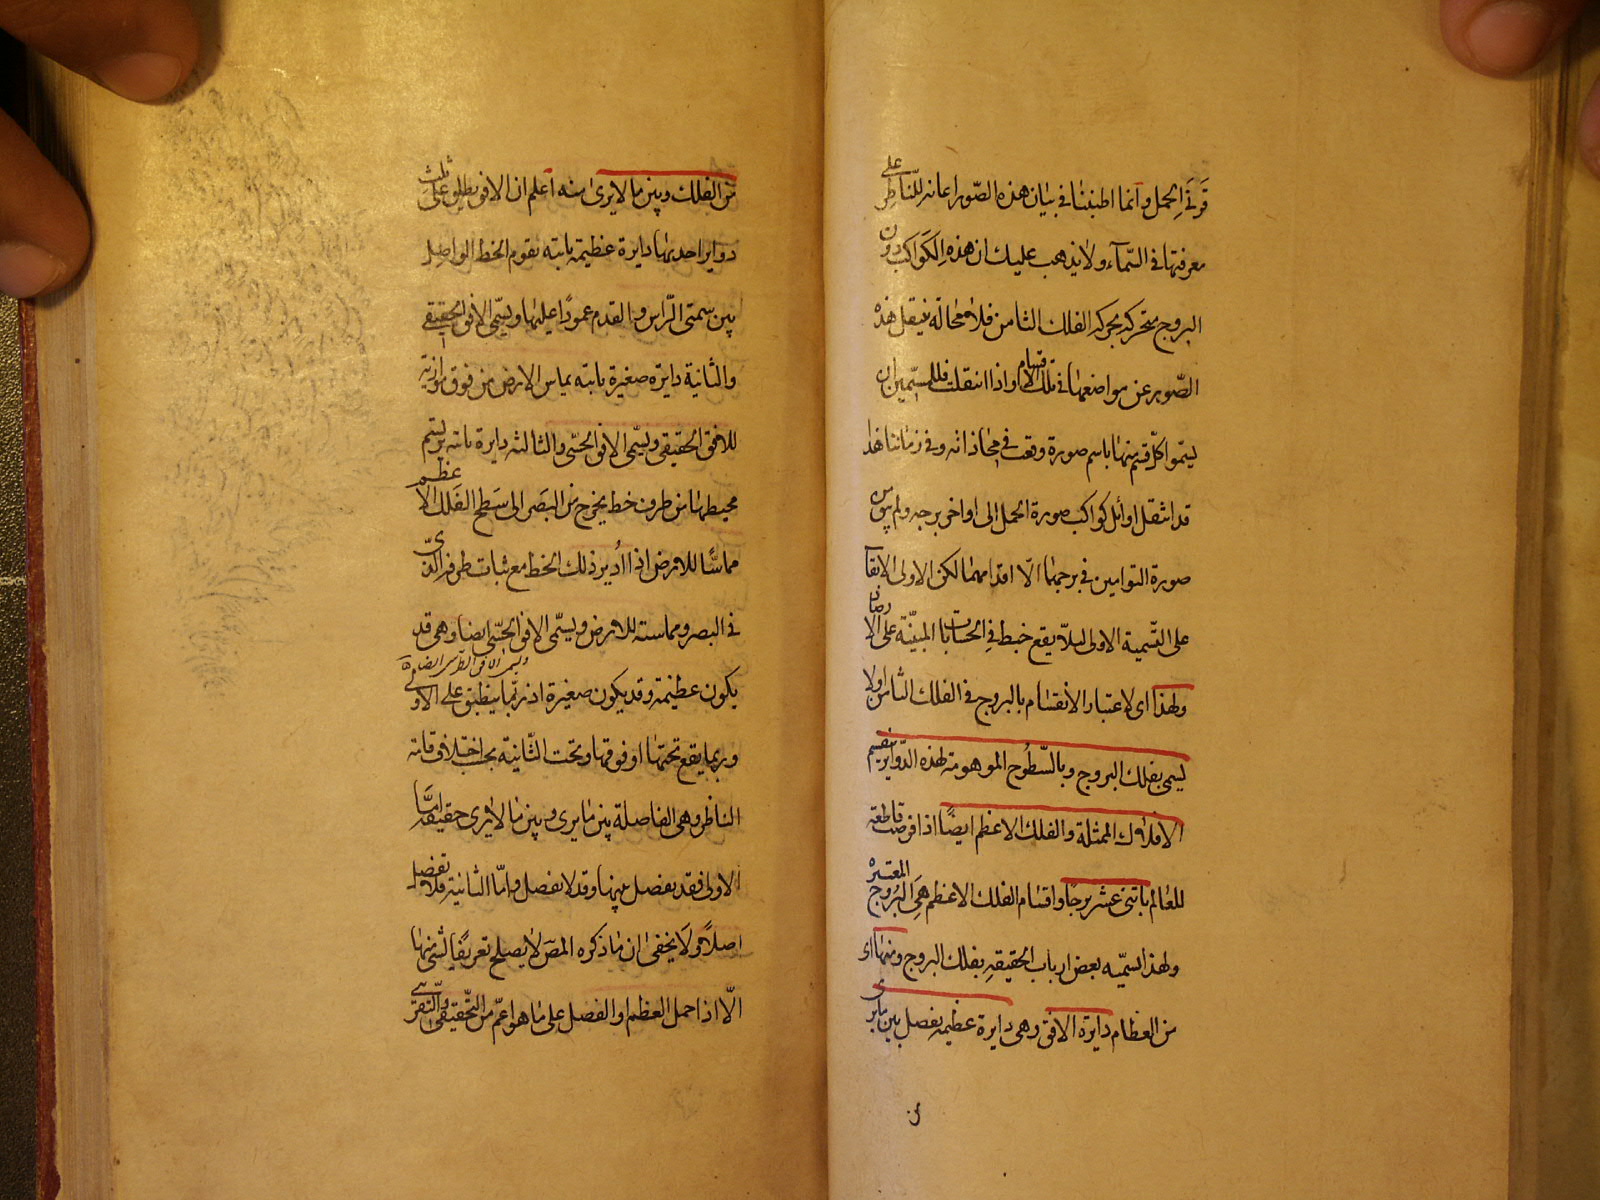 قرني الحمل وانما اطنبنا في بيان هذه الصور اعانة للناظر على
معرفتها في السماء ولا يذهب عليك ان هذه الكواكب دون
البروج متحركة بحركة الفلك الثامن فلا محالة ينتقل هذه
الصور عن مواضعها في تلك الاقسام واذا انتقلت فللمسمين ان
يسموا كل قسم منها باسم صورة وقعت في محاذاته وفي زماننا هذا
قد انتقل اوائل كواكب صورة الحمل الى اواخر برجه ولم يبق من
صورة التوامين في برجهما الا اقدامهما لكن الاولى الابقا
على التسمية الاولى ليلا يقع خبط في الحسابات المبينة على الارصاد
ولهذا اى لاعتبار الانقسام بالبروج في الفلك الثامن اولا
يسمى بفلك البروج وبالسطوح الموهومة لهذه الدواير ينقسم
الافلاك الممثلة والفلك الاعظم ايضا اذا فرضت قاطعة
للعالم باثنى عشر برجا واقسام الفلك الاعظم هي البروج المعتبرة
ولهذا يسميه بعض ارباب الحقيقة بفلك البروج ومنها اى
من العظام دايرة الافق وهى دايرة عظيمة يفصل بين ما يرى
من الفلك وبين ما لا يرى منه اعلم ان الافق يطلق على ثلث
دواير احديها دايرة عظيمة ثابتة يقوم الخط الواصل
بين سمتى الراس والقدم عمودا عليها ويسمى الافق الحقيقى
والثانية دايرة صغيرة ثابتة يماس الارض من فوق موازية
للافق الحقيقى ويسمى الافق الحسى والثالثة دايرة ثابتة يرتسم
محيطها من طرف خط يخرج من البصر الى سطح الفلك الاعظم
مماسا للارض اذا ادير ذلك الخط مع ثبات طرفه الذى
في البصر ومماسته للارض ويسمى الافق الحسى ايضا وهى قد
ويسمى الافق الترسى ايضا
يكون عظيمة وقد يكون صغيرة اذ ربما ينطبق على الاولى
وربما يقع تحتها او فوقها وتحت الثانية بحسب اختلاف قامة
الناظر وهى الفاصلة بين ما يرى وبين ما لا يرى حقيقة اما
الاولى فقد يفصل بينهما وقد لا يفصل واما الثانية فلا يفصل
اصلا ولا يخفى ان ما ذكره المص لا يصلح تعريفا لشئ منها
الا اذا حمل العظم والفصل على ما هو اعم من التحقيقى والتقريبى